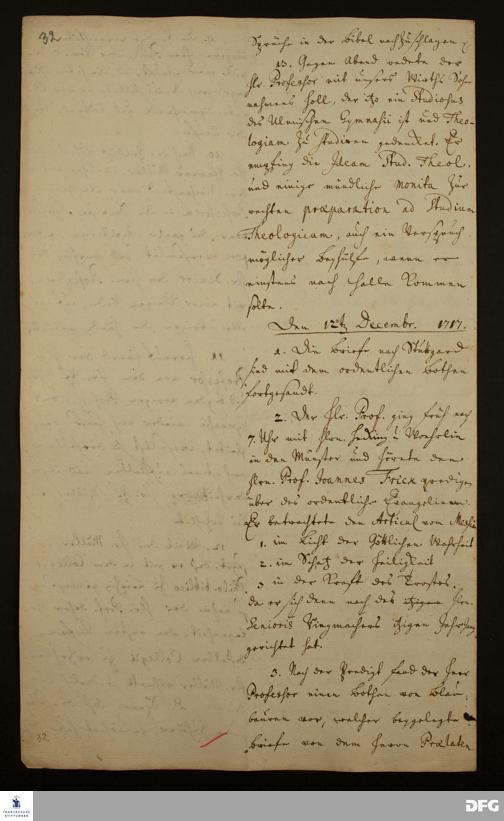 32
Sprüche in der Bibel nachzuschlagen
13. Gegen Abend redete der
Hr. Professor mit unsers Wirths
Soll, der itzo ein Studiosus
des Ulmischen Gymnasii ist und Theo-
logiam zu studiren gedencket. Er
empfing die Ideam Stud. Theol.
und einige mündliche monita zur
rechten præparation ad Studium
Theologicum, auch ein Versprech
möglicher beyhülfe, wenn er
einstens nach Halle kommen
solte.
Den 12ten Decembr. 1717.
1. Die briefe nach Stutgard
sind mit dem ordentlichen bothen
fortgesandt.
2. Der Hr. Prof. ging früh nach
7. Uhr mit Hrn.
in den Münster und hörete den
Hrn. Prof. Joannes Frick predigen
über das ordentliche Evangelium.
Er betrachtete den Articul vom
1. im Licht der Göttlichen Wahrheit
2. im Schatz der Heiligkeit
3 in der Kraft des Trostes.
da er sich denn nach des Hrn.
Senioris itzigen
gerichtet hat.
3. Nach der Predigt fand der Herr
Professor einen bothen von blau-
beuren vor, welcher beygelegte
briefe von dem Herrn Prælaten
32
FRANCKESCHE
STIFTUNGEN
DFG